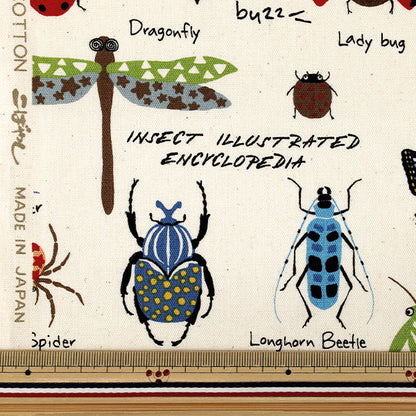 Dragonfly
buzz
Lady bug
INSECT ILLUSTRATED
ENCYCLOPEDIA
Spider
Longhorn Beetle
COTTON
MADE IN JAPAN